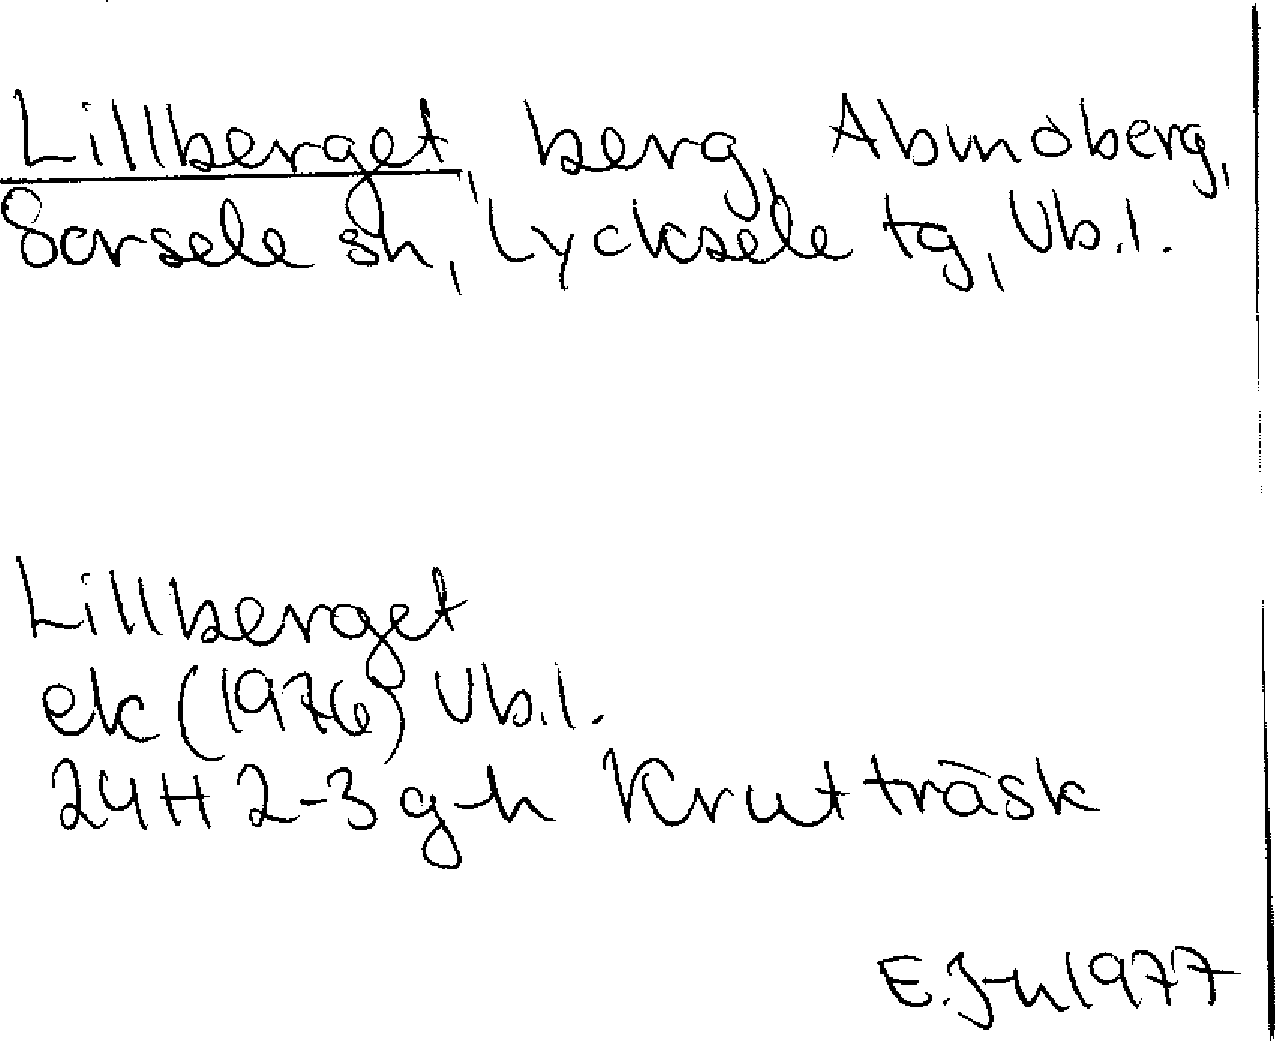 Lillberget, berg, Abmoberg,
Sorsele sn, Lycksele tg, Vb.l.
Lillberget
ek (1976) Vb.l.
24H 2-3 g-h Krutträsk
E.J-n 1977